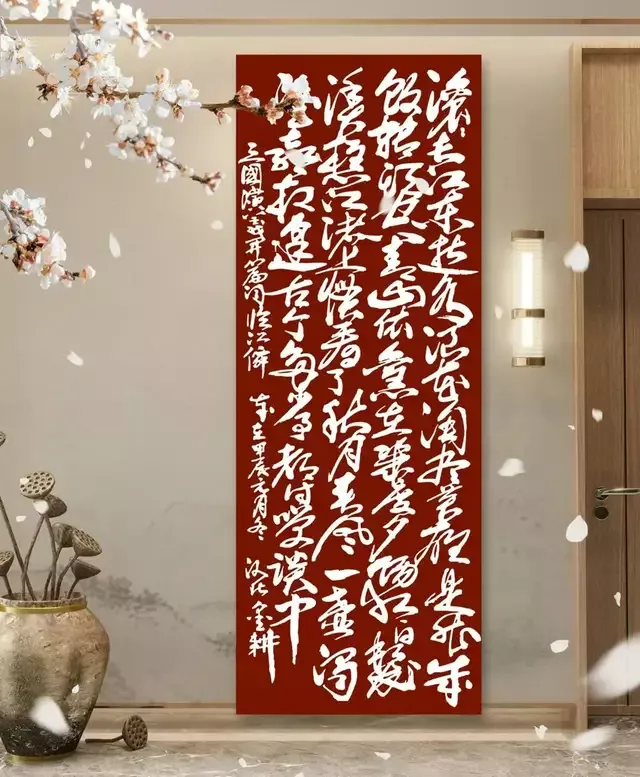 滚滚长江东逝水浪花淘尽英雄是非成
败转头空青山依旧在几度夕阳红白髮
渔樵江渚上惯看了秋月春风一壶浊
酒喜相逢古今多少事都付笑谈中
三國演義开篇词临江僊 岁在甲辰元月冬